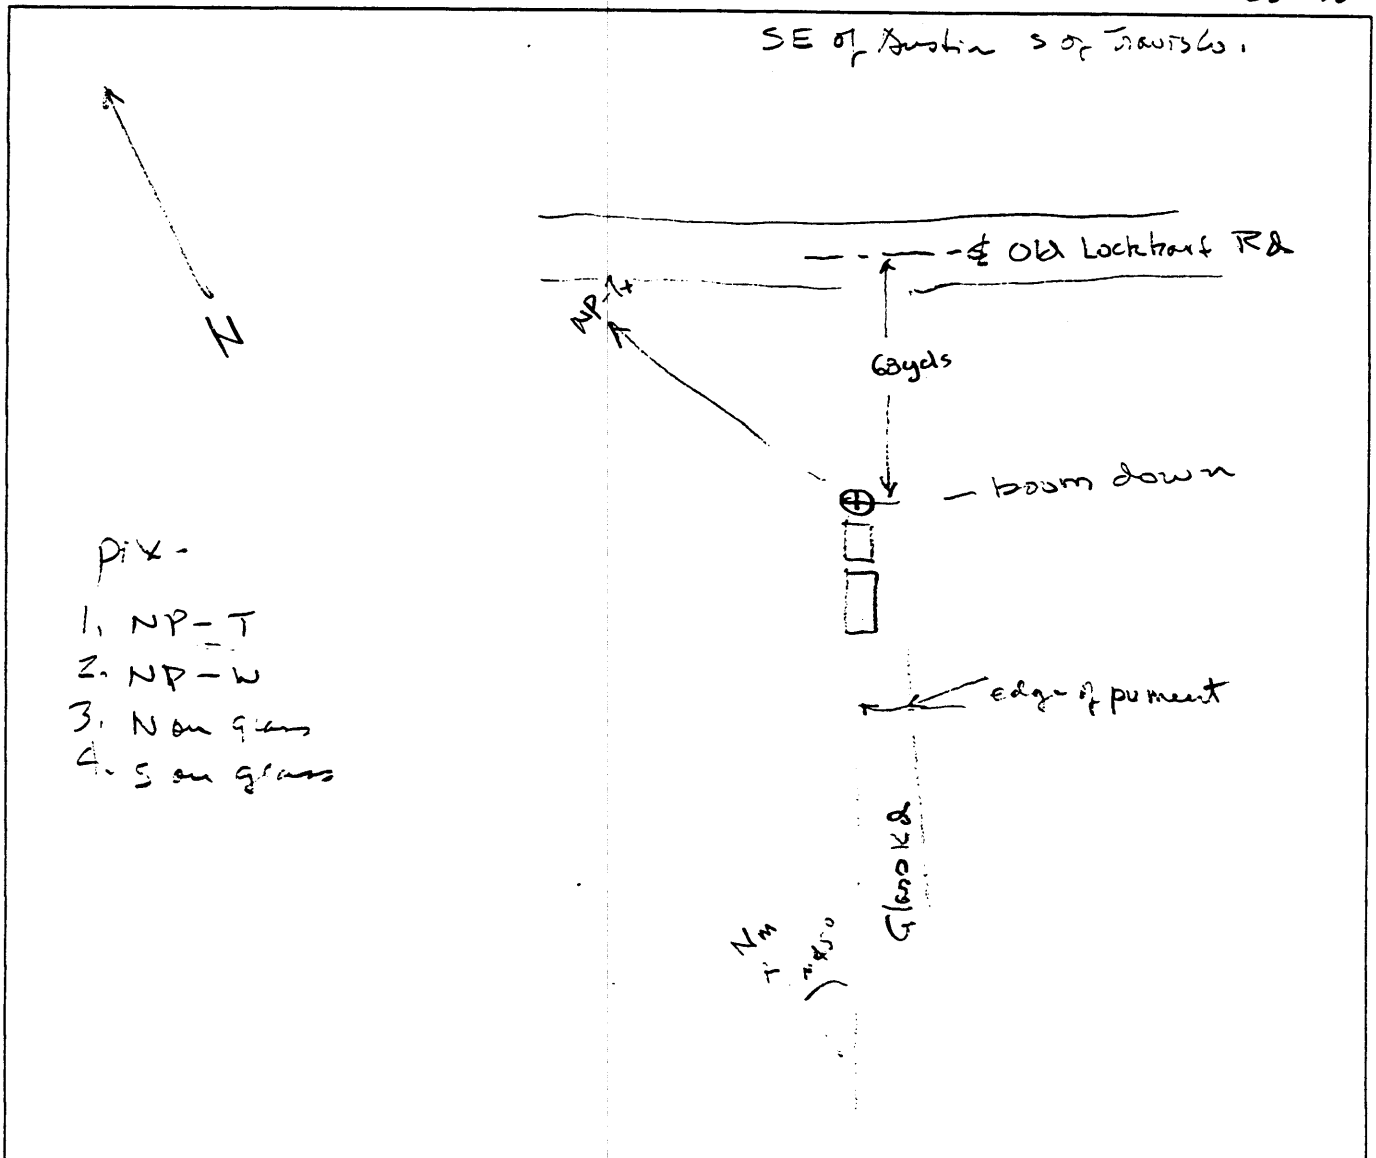 SE of Austin S of Travis Co.
N
℄ Old Lockhart Rd
NP
63yds
boom down
pix -
1. NP - T
2. NP - W
3. N on glass
4. S on glass
edge of pvment